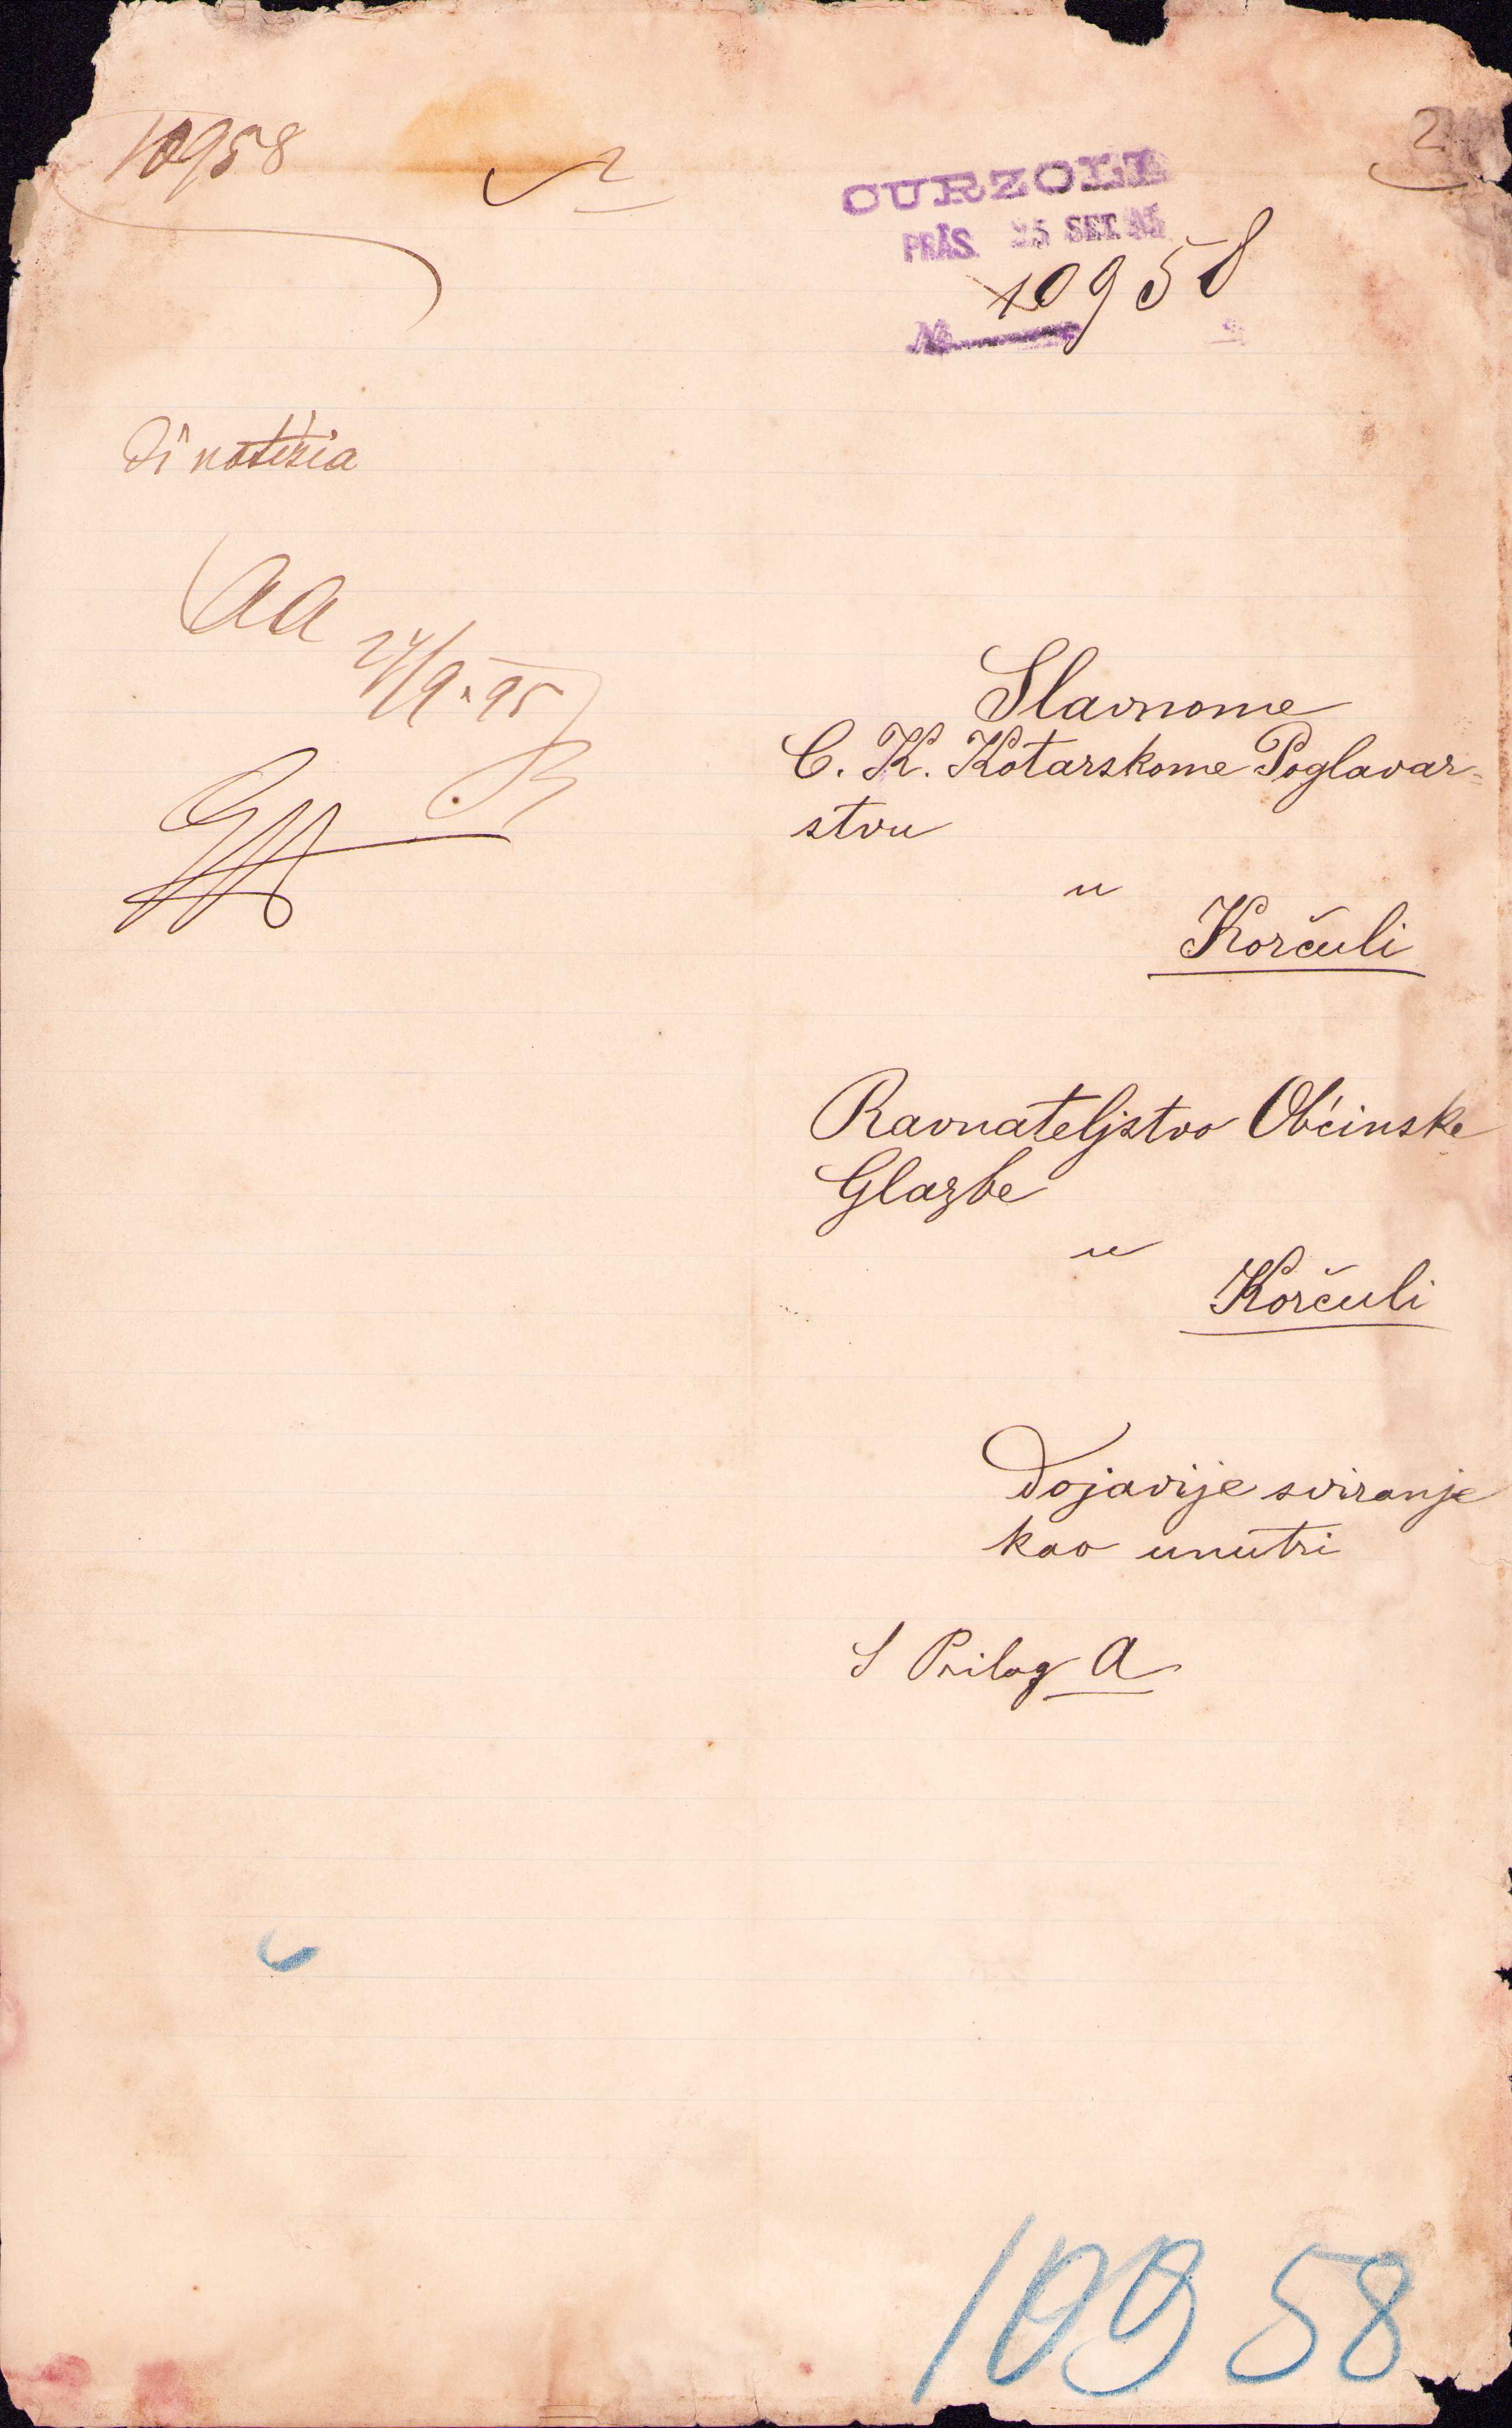 10958
2
2
CURZOLA
PRÄS. 25 SET. 95
10958
№
Di notizia
aa
27/9. 95
Slavnome
C. K. Kotarskome Poglavar-
stvu
u
Korčuli
Ravnateljstvo Občinske
Glazbe
u
Korčuli
Dojavije sviranje
kao unutri
S Prilog A
10958